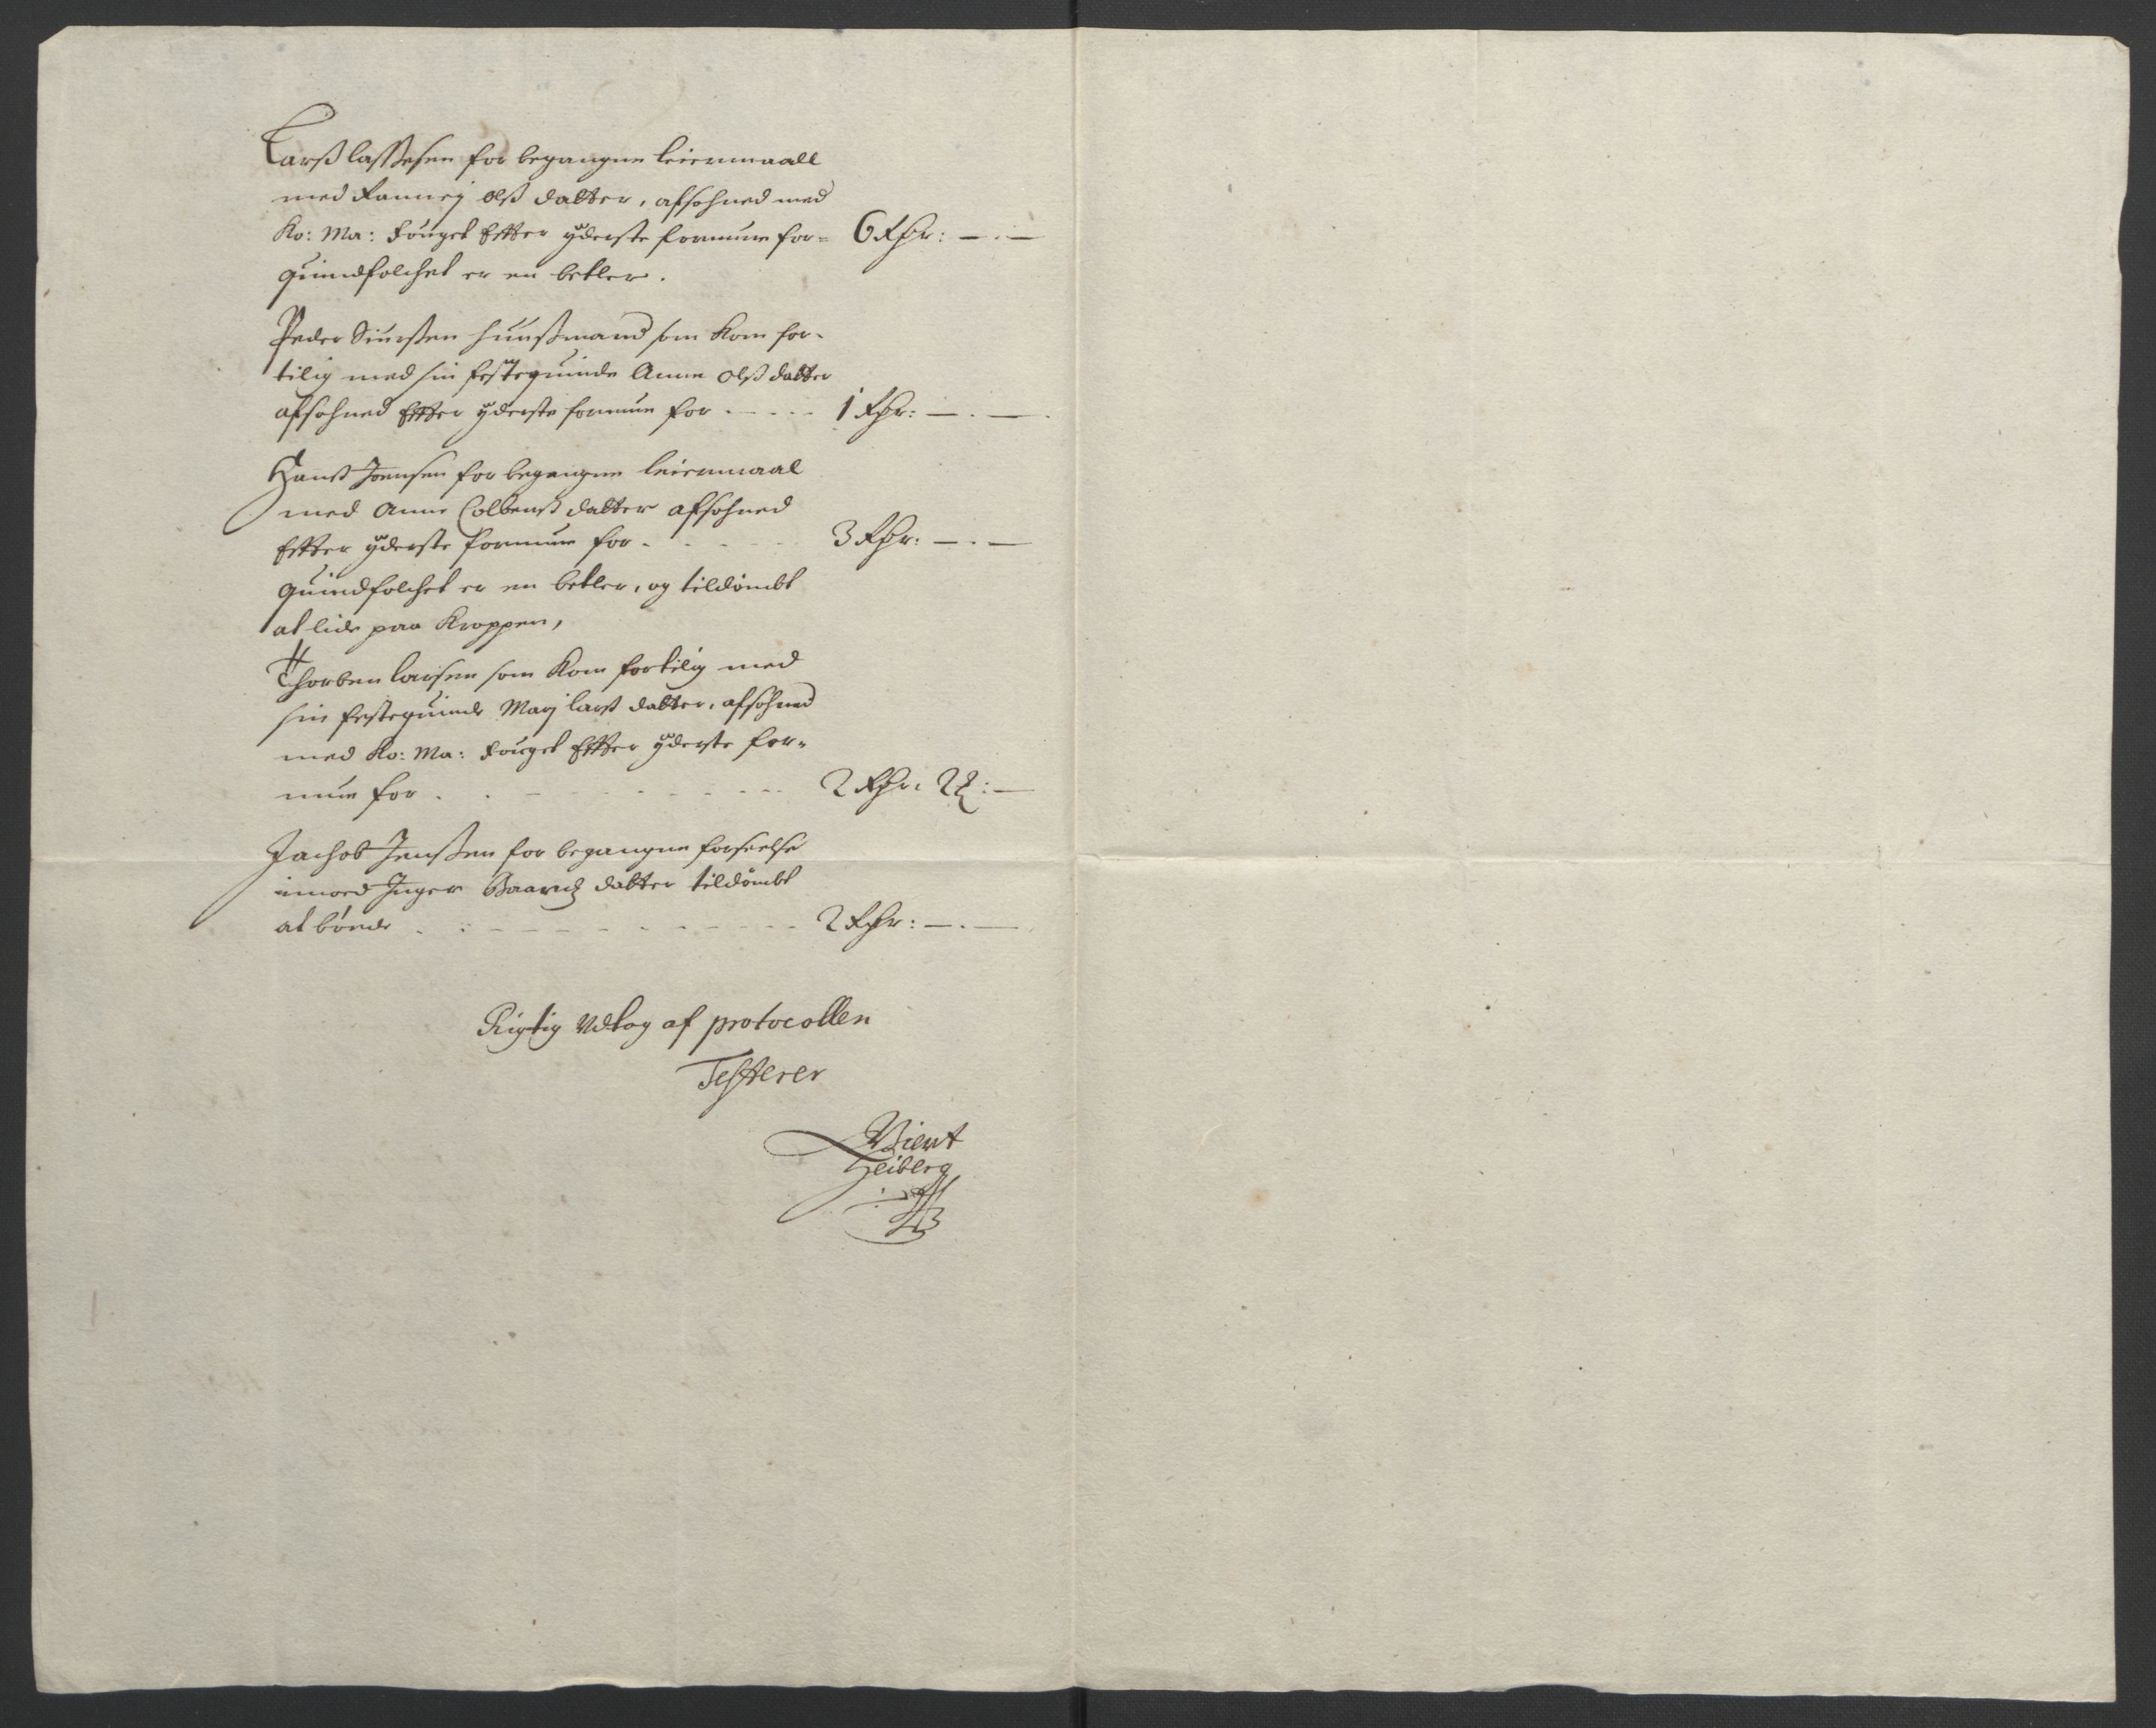 Larß lassesen for begangne leiermaall
med Ranney olß datter, afsohned med
Ko: Ma: fouget Effter yderste formue for= 6 Rdr: — . —
quindfolchet er en betler.
Peder Siursen huusmand som kom for-
tilig med sin festequinde Anne olß datter
afsohned Effter yderste formue for - - - - 1 Rdr: — . — .
Hanß Jensen for begangne leiermaal
med Anne Colbenß datter afsohned
Effter yderste formue for - - - - 3 Rdr: — . —
quindfolchet er en betler, og tildømbt
at lide paa Kroppen,
Thorben larsen som kom fortilig med
sin festequinde Marj larß datter, afsohned
med Ko: Ma: fouget Effter yderste for-
mue for - - - - 2 Rdr: 2 : —
Jachob Jenssen for begangne forseelse
imod Inger Baardz datter tildømbt
at bøede - - - - 2 Rdr: — . —
Rigtig Udtog af protocollen
Testerer
Viert
Heiberg